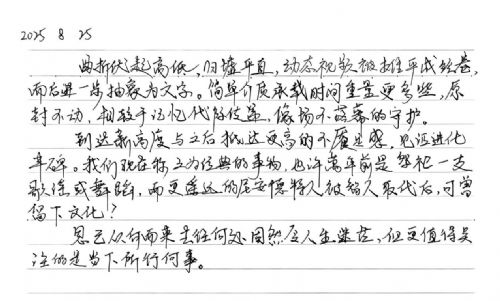 2025 8 25
曲折伏起高低，归墟平直，动态视频被推平成轻卷，
而后进一步抽象为文字。简单介质承载时间重量更多些，原
封不动，相较于记忆代际传递，像物不落幕的守护。
到达新高度与之后抵达更高的不餍足感，见证进化
丰碑。我们现在称之为经典的事物，也许万年前是祭祀一支
歌谣或舞蹈，而更遥远的尼安德特人被智人取代后，可曾
留下文化？
思己从何而来去往何处固然是人生迷茫，但更值得关
注的是当下所行何事。